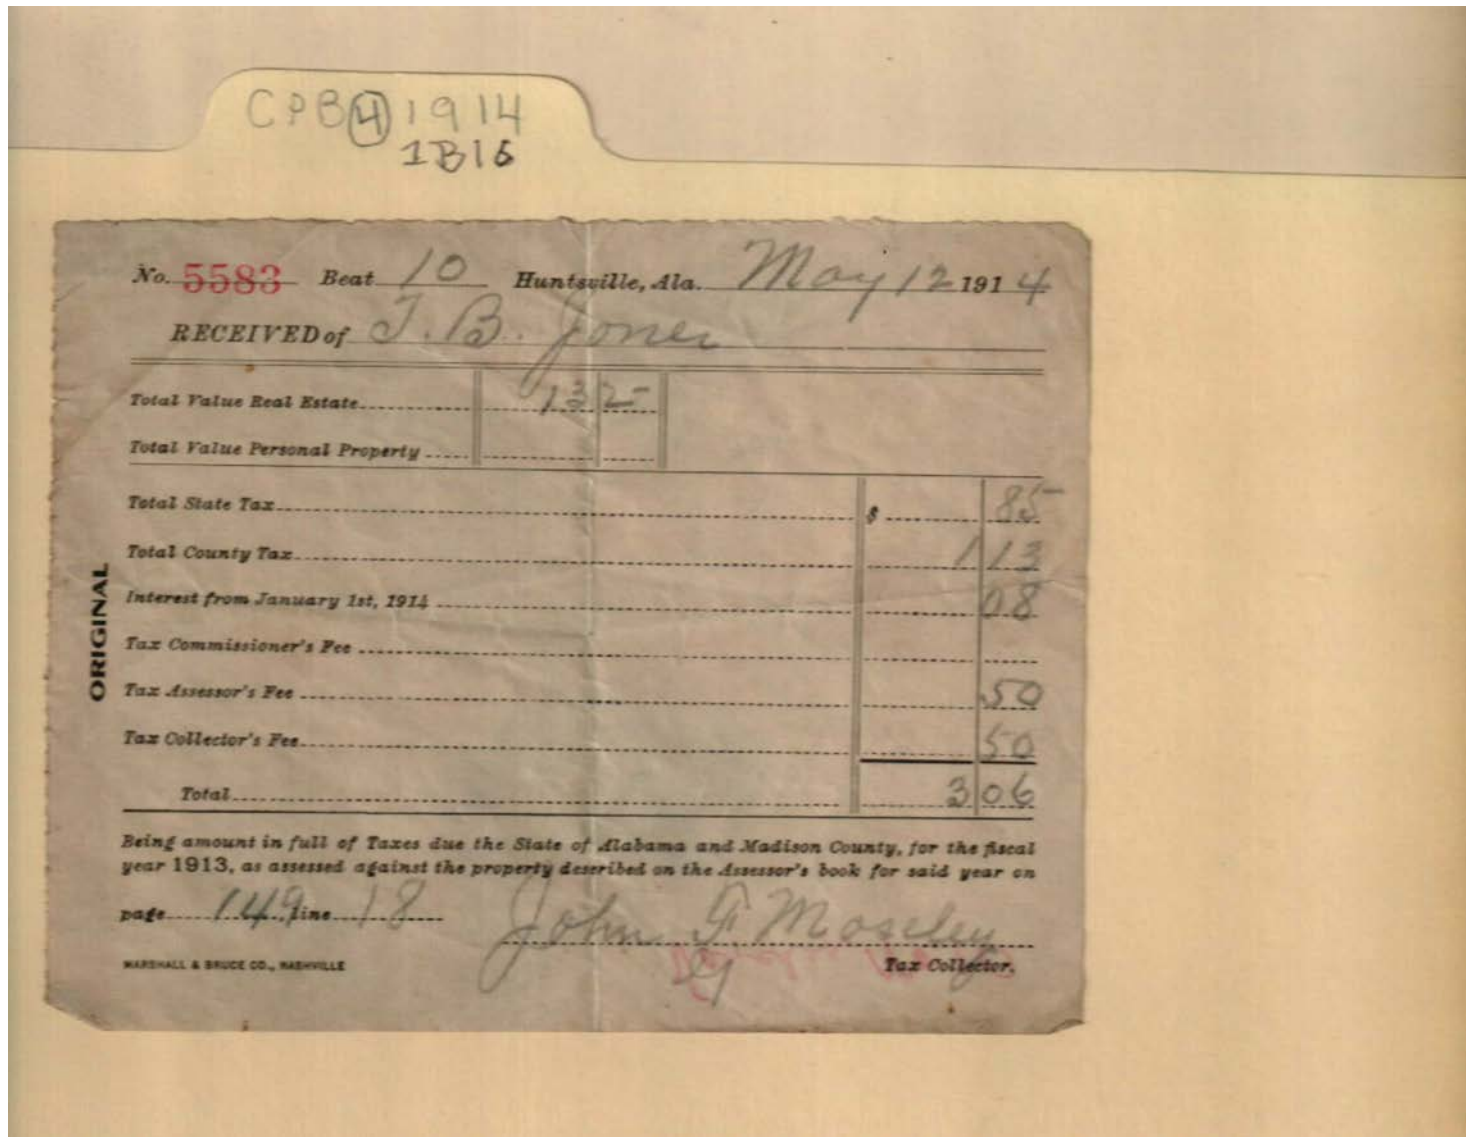 CPB 4 1914
1B16
No. 5583 Beat 10 Huntsville, Ala. May 12 1914
RECEIVED of T. B. Jones
Total Value Real Estate 132-
Total Value Personal Property
Total State Tax $ 85
Total County Tax 1 13
Interest from January 1st, 1914 08
Tax Commissioner's Fee
Tax Assessor's Fee 50
Tax Collector's Fee 50
Total 3 06
Being amount in full of Taxes due the State of Alabama and Madison County, for the fiscal
year 1913, as assessed against the property described on the Assessor's book for said year on
page 149, line 18 John F Moseley
MARSHALL & BRUCE CO., NASHVILLE Tax Collector.
ORIGINAL